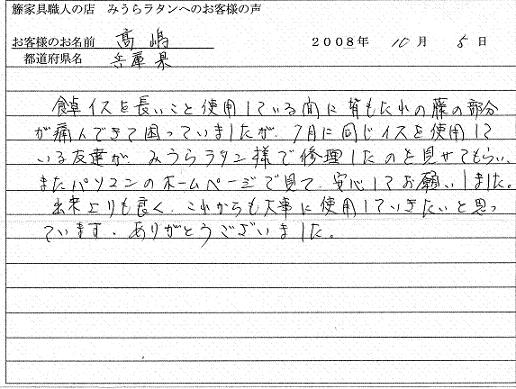 籐家具職人の店　みうらラタンへのお客様の声
お客様のお名前　高嶋　２００８年　10月　5日
都道府県名　兵庫県
食卓イスを長いこと使用している間に背もたれの藤の部分
が痛んできて困っていましたが、7月に同じイスを使用して
いる友達が、みうらラタン様で修理したのを見せてもらい、
またパソコンのホームページで見て、安心してお願いしました。
出来上りも良く、これからも大事に使用していきたいと思っ
ています。ありがとうございました。